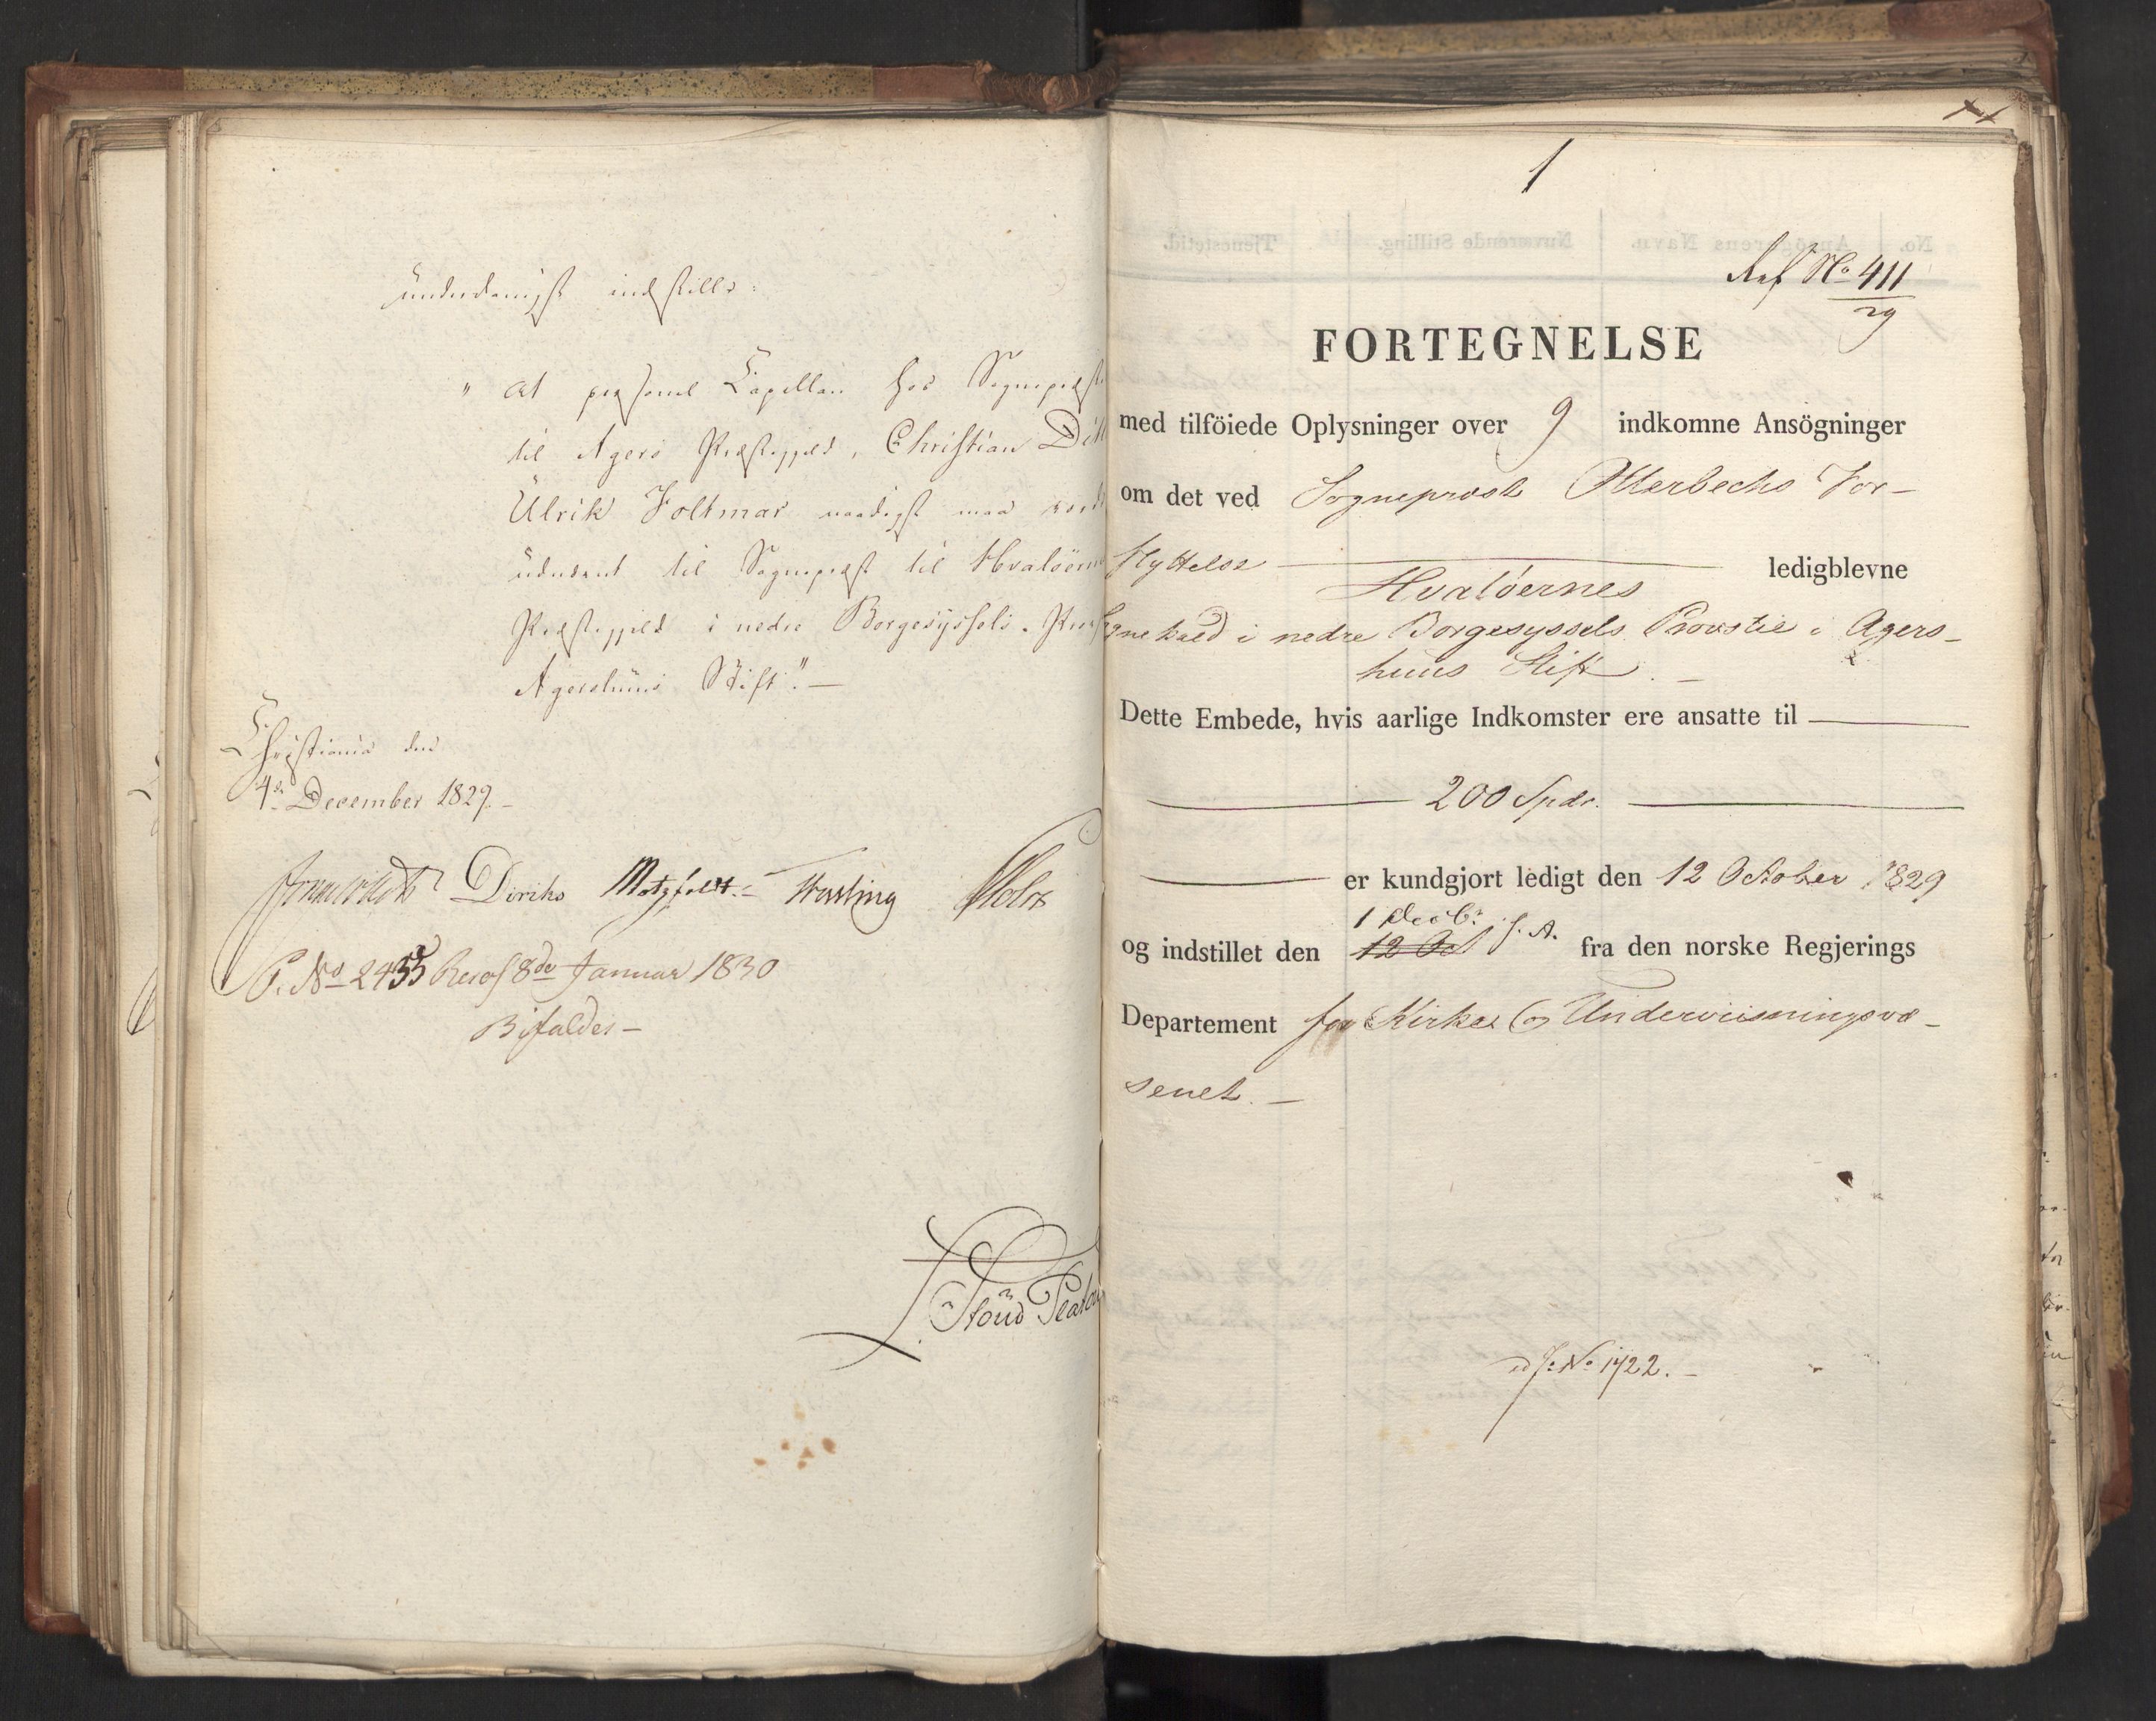 underdanigst indstille:
" at personel Capellan hos Sognepræst
til Agers Præstegjeld, Christian
Ulrik Foltmar naadigst maa
udnævnt til Sognepræst til Hvaløern
Præstegjeld i nedre Borgesyssels
Agershuus Stift". —
Christiania den
4de December 1829. —
Diriks Motzfeldt. Fasting Holst
P. No 2435 Resol 8de Januar 1830
Bifaldes —
1
Ref No 411
29
FORTEGNELSE
med tilföiede Oplysninger over 9 indkomne Ansögninger
om det ved Sogneprest Otterbechs For-
flyttelse — ledigblevne
Hvaløernes
gnekald i nedre Borgesyssels Provstie i Agers-
huus Stift. —
Dette Embede, hvis aarlige Indkomster ere ansatte til —
— 200 Spdr. —
— er kundgjort ledigt den 12 October 1829
1 Decbr f. A.
og indstillet den 12 Oct fra den norske Regjerings
Departement for Kirke og Underviisningsvæ-
senet. —
J. No 1722. —